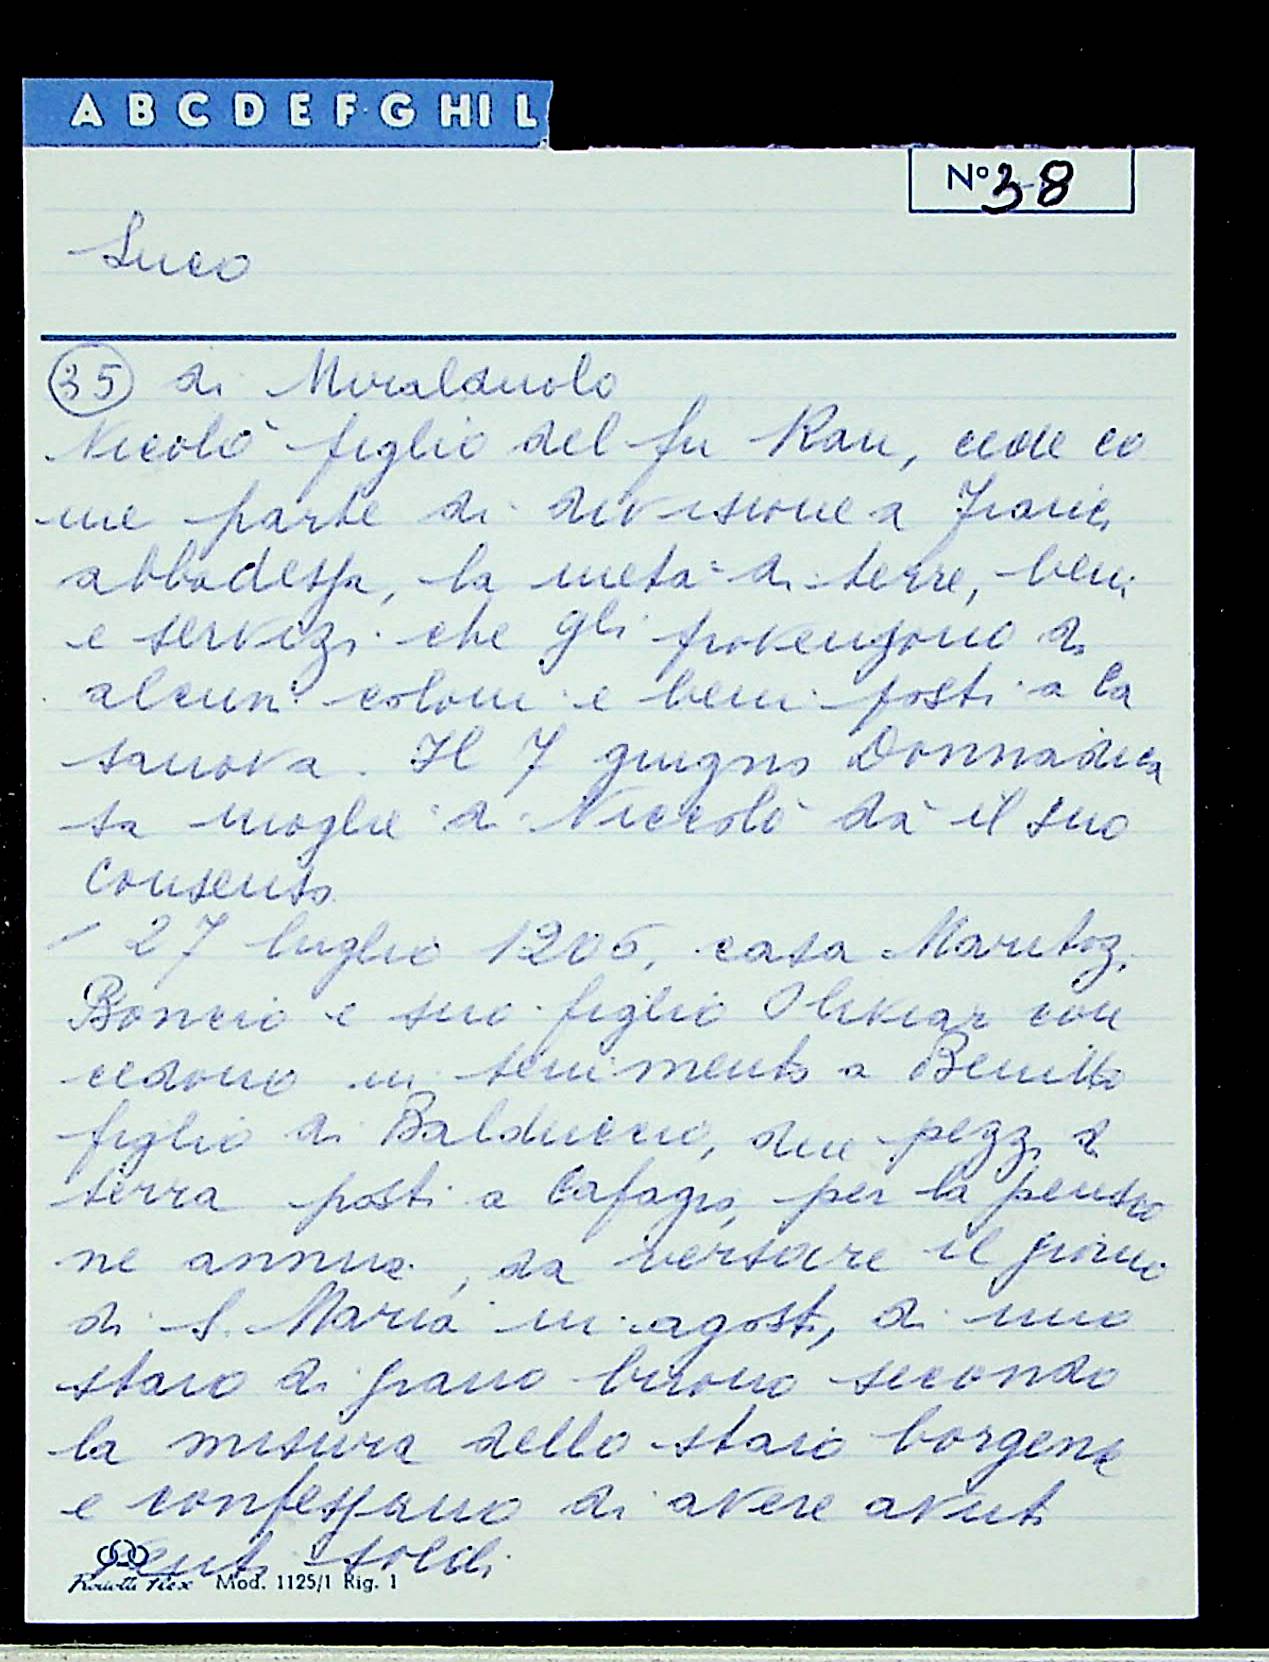 A B C D E F G H I L
N° 38
Luco
35 di Miralduolo
Nicolò figlio del fu Rau, cede co
me parte di divisione a
abbadessa, la metà di terre, beni
e servizi che gli provengono da
alcuni coloni e beni posti a Ca
sanova. Il 7 giugno Donnadica
sa moglie di Niccolò dà il suo
consenso
27 luglio 1205, casa
Boncio e suo figlio Olivier con
cedono in tenimento a Benitto
figlio di Balduccio, due pezzi di
terra posti a Cafagio, per la pensio
ne annua, da versare il giorno
di S. Maria in agosto, di uno
staio di grano buono secondo
la misura dello staio borgense
e confessano di avere avuti
venti soldi
Mod. 1125/1 Rig. 1